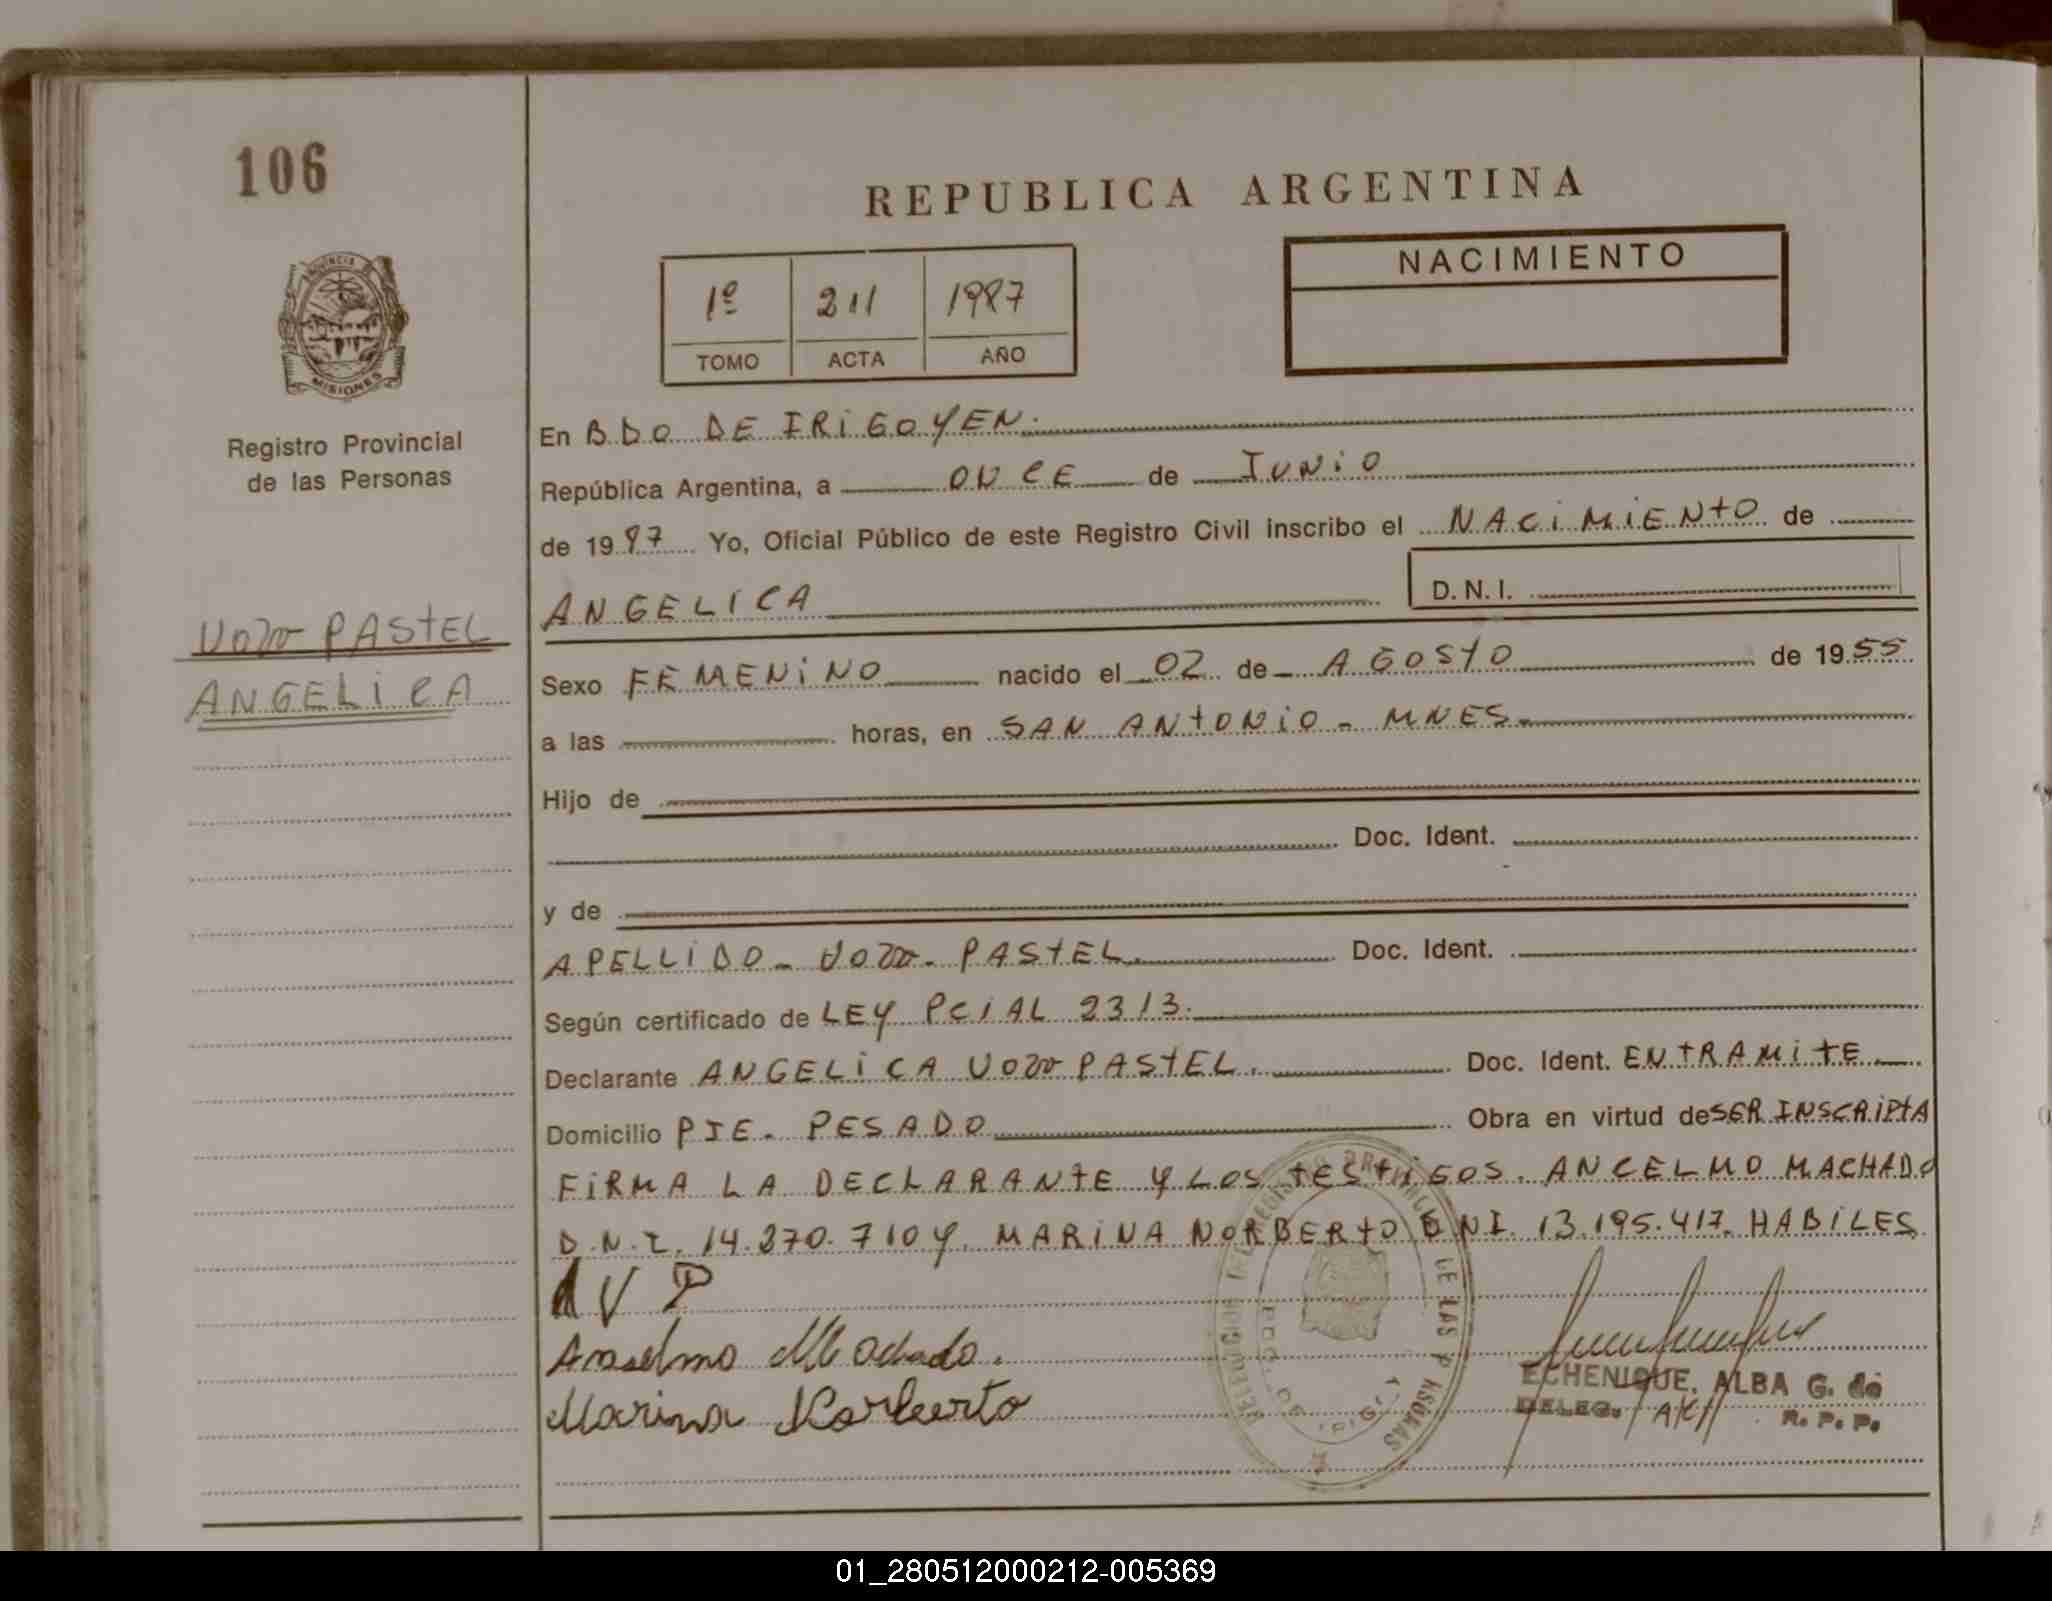 106
REPUBLICA ARGENTINA
NACIMIENTO
1º 211 1987
TOMO ACTA AÑO
PROVINCIA DE
MISIONES
Registro Provincial
de las Personas
PASTEL
ANGELICA
En BDO DE IRIGOYEN.
República Argentina, a ONCE de JUNIO
de 1987 Yo, Oficial Público de este Registro Civil inscribo el NACIMIENTO de
ANGELICA D.N.I.
Sexo FEMENINO nacido el 02 de AGOSTO de 1955
a las horas, en SAN ANTONIO - MNES.
Hijo de
Doc. Ident.
y de
APELLIDO - PASTEL. Doc. Ident.
Según certificado de LEY PCIAL 2313.
Declarante ANGELICA PASTEL. Doc. Ident. EN TRAMITE
Domicilio PJE. PESADO Obra en virtud de SER INSCRIPTA
FIRMA LA DECLARANTE Y LOS TESTIGOS. ANCELMO MACHADO
D.N.I. 14.270.710 Y. MARINA NORBERTO DNI. 13.195.417. HABILES
A V P
Anselmo Machado.
Marina Norberto
ECHENIQUE, ALBA G. de
DELEG. R. P. P.
01_280512000212-005369